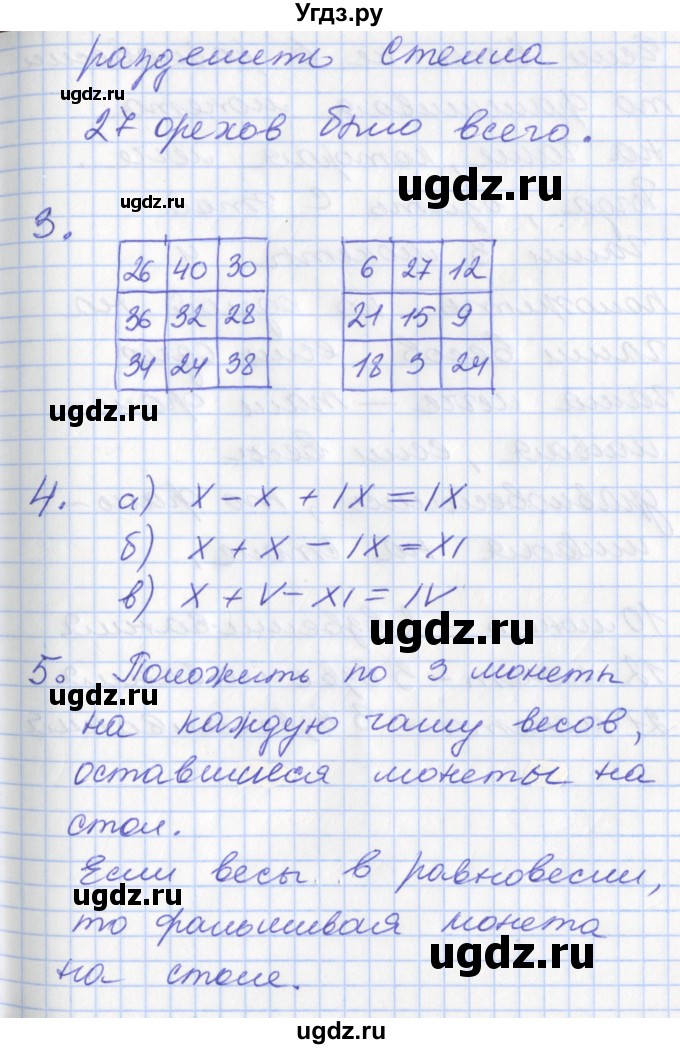 Угдз.ру
разделить Стелла
ugdz.ru
27 орехов было всего.
ugdz.ru
ugdz.ru
3.
26 40 30
36 32 28
34 24 38
6 27 12
21 15 9
18 3 24
ugdz.ru
ugdz.ru
4. а) X – X + IX = IX
б) X + X – IX = XI
в) X + V – XI = IV
ugdz.ru
5. Положить по 3 монеты
ugdz.ru
на каждую чашу весов,
оставшиеся монеты на
стол.
ugdz.ru
Если весы в равновесии,
ugdz.ru
то фальшивая монета
ugdz.ru
на столе.
ugdz.ru